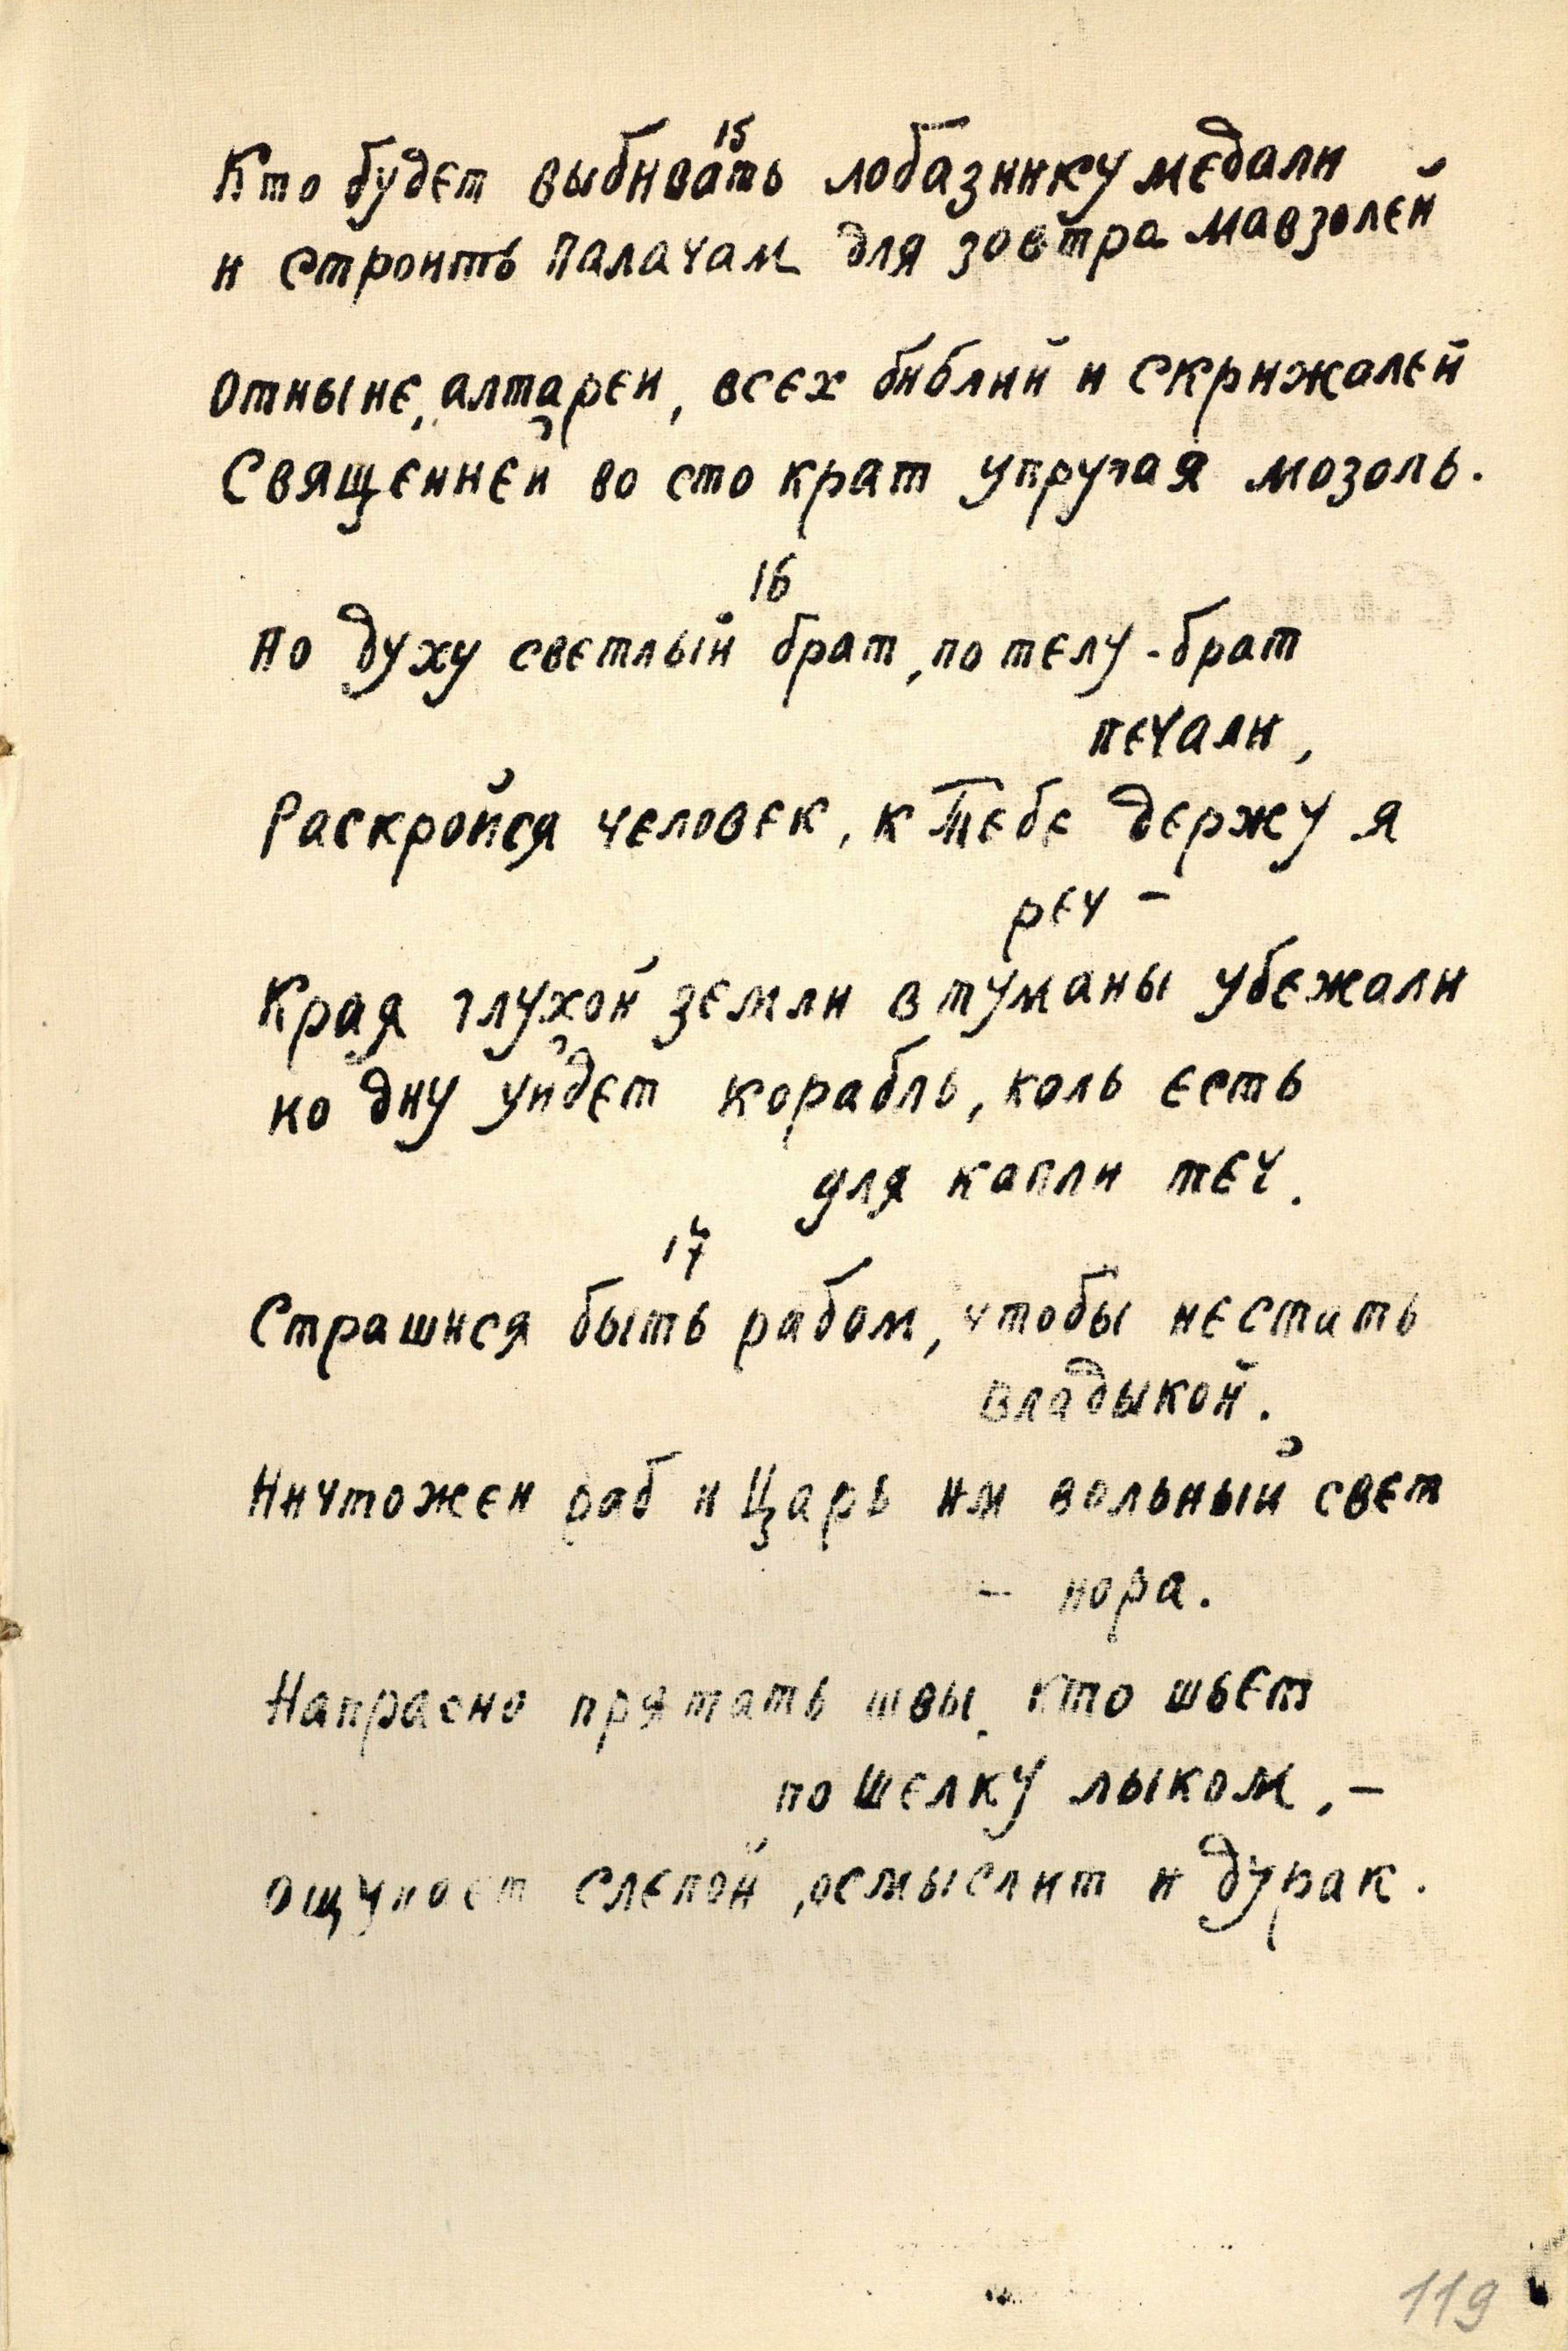 15
Кто будет выбивать лобазнику медали
и строить палачам для зовтра мавзолей
Отныне, алтарей, всех библий и скрижалей
Священней во сто крат упругая мозоль.
16
По духу светлый брат, по телу - брат
печали,
Раскройся человек, к Тебе держу я
реч –
Края глухой земли в туманы убежали
ко дну уйдет корабль, коль есть
для капли теч.
17
Страшися быть рабом, чтобы не стать
владыкой.
Ничтожен раб и Царь им вольный свет
– нора.
Напрасно прятать швы, кто шьет
по шелку лыком, –
ощупает слепой, осмыслит и дурак.
119